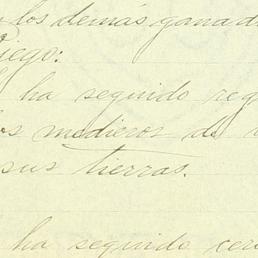 los demás ganad
Riego:
ha seguido reg
os medieros de
sus tierras.
ha seguido cer